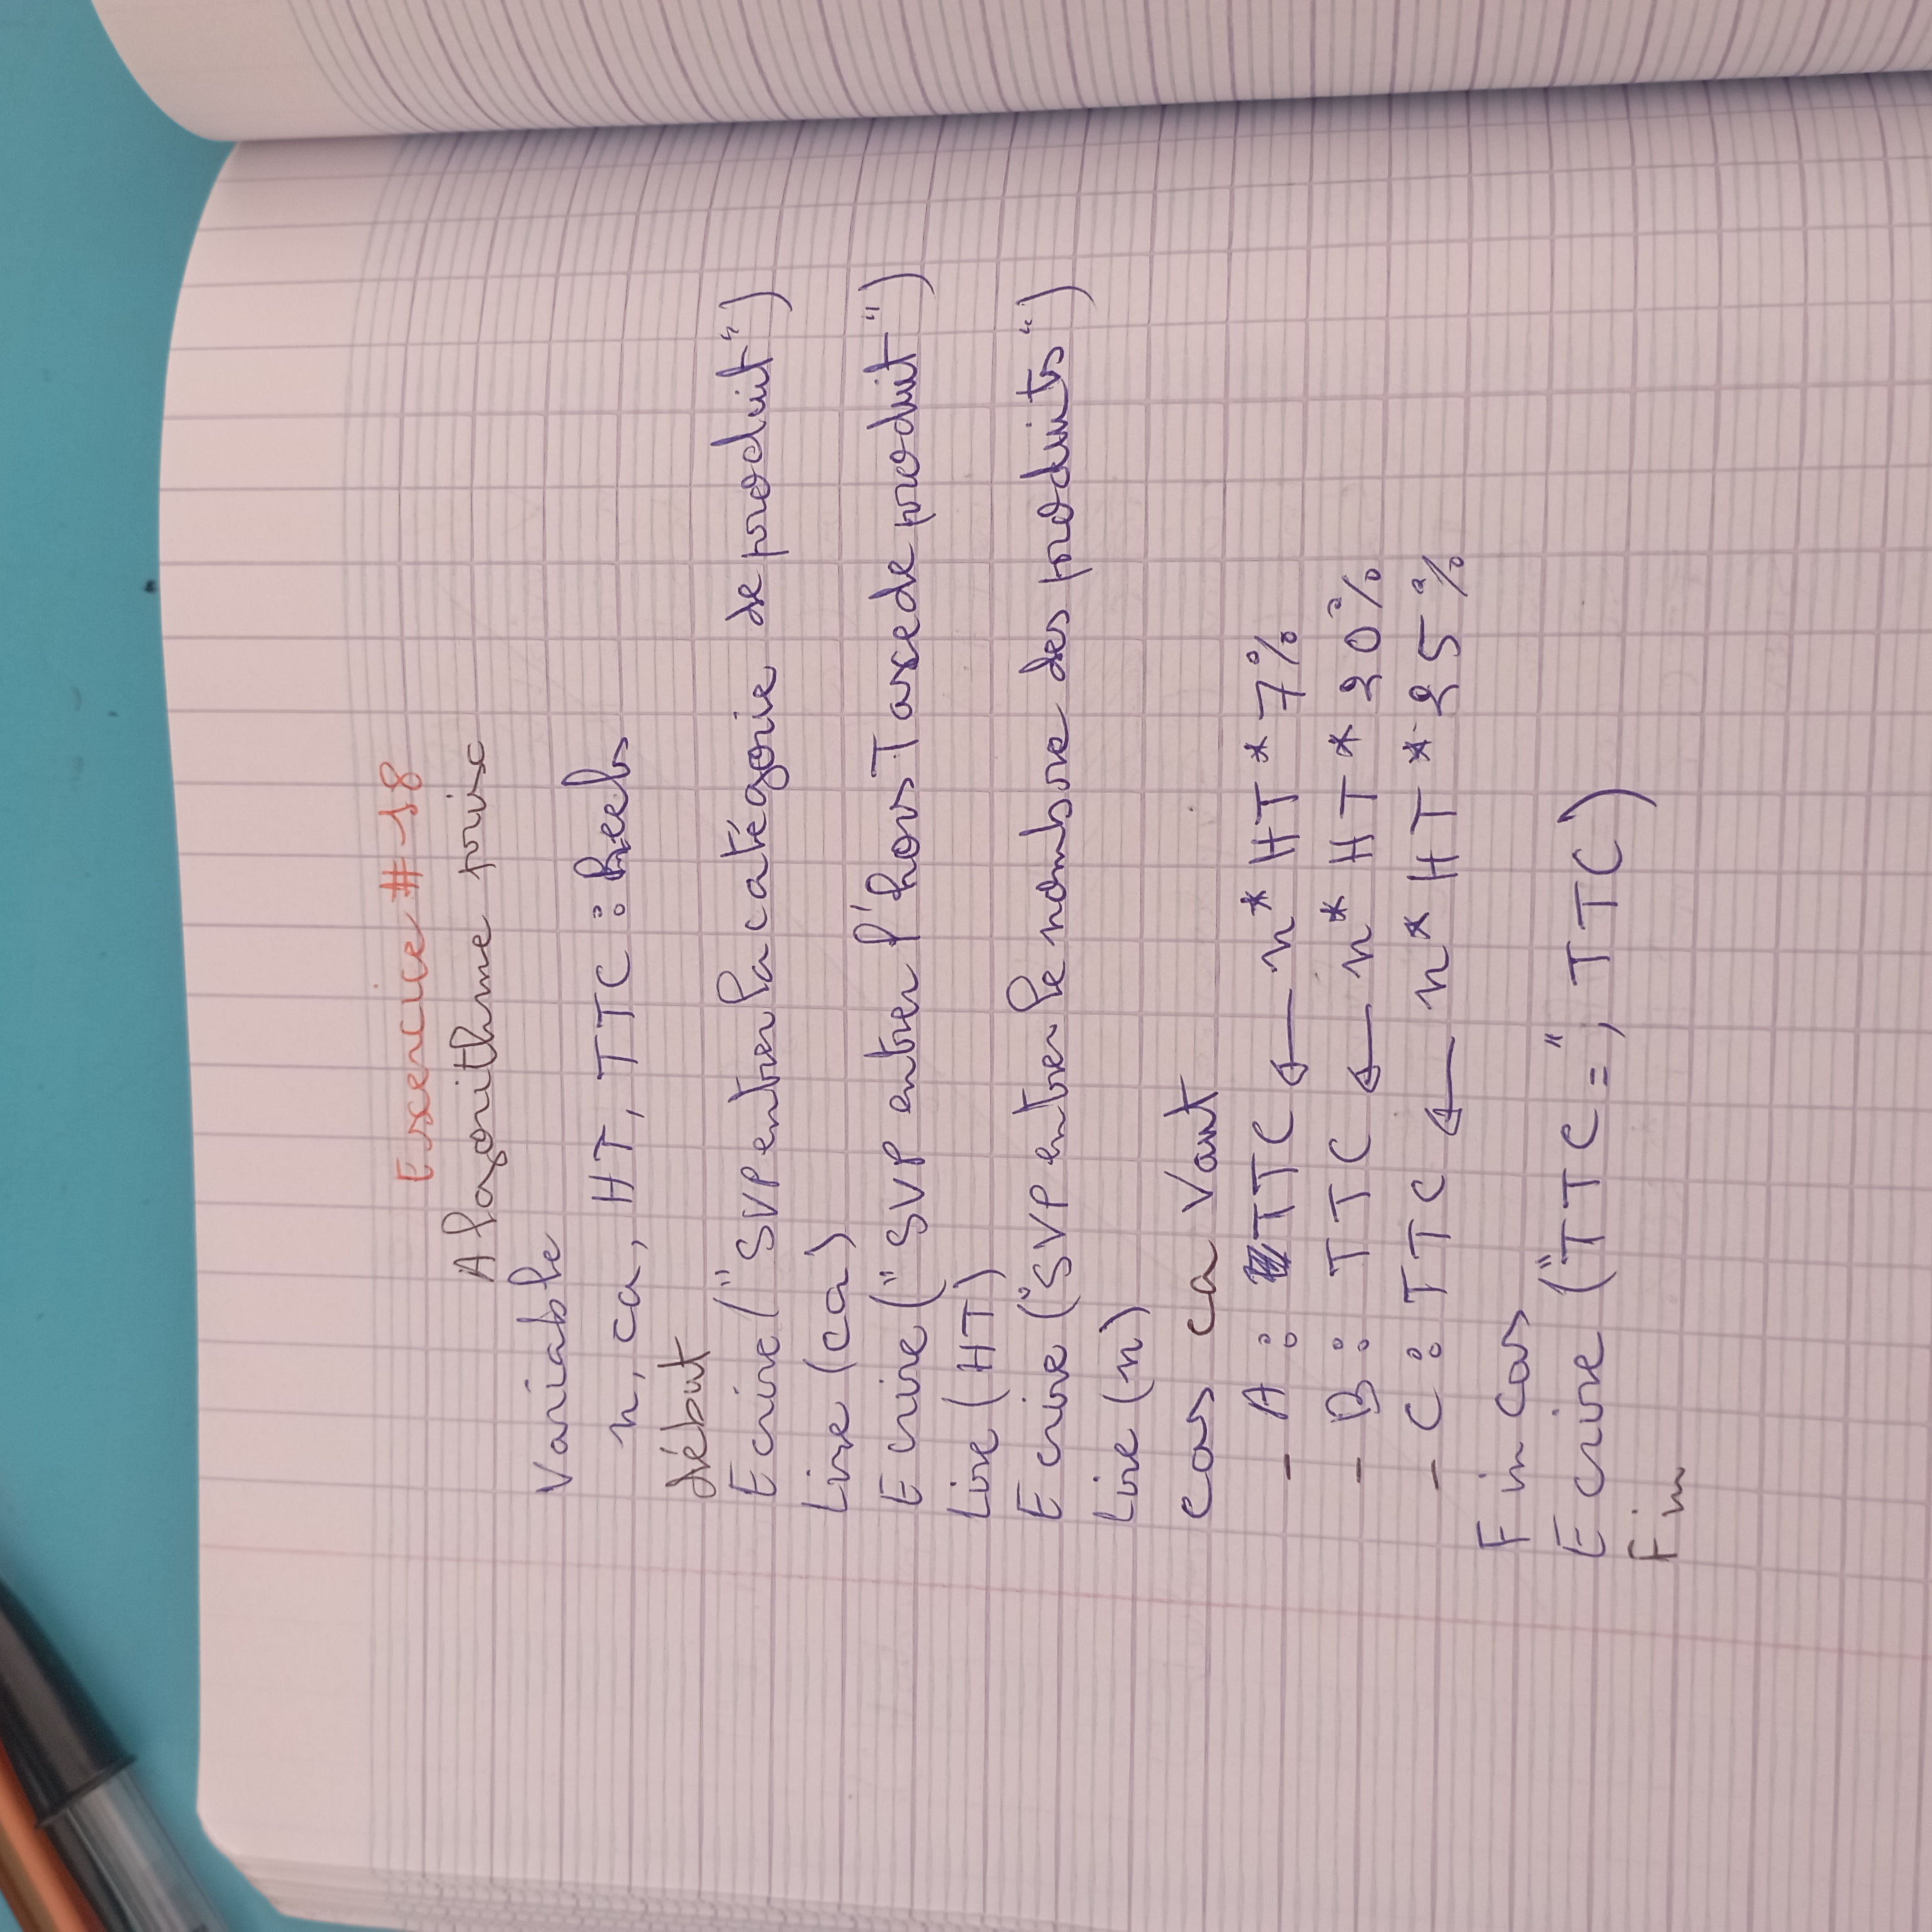 Exercice # 18
Algorithme prix
Variable
n, ca, HT, TTC : Reels
début
Ecrire ("SVP entrer la catégorie de produit")
Lire (ca)
Ecrire ("SVP entrer l'hors Taxe de produit")
Lire (HT)
Ecrire ("SVP entrer le nombre des produits")
Lire (n)
cas ca Vaut
- A : TTC ← n * HT * 7%
- B : TTC ← n * HT * 20%
- C : TTC ← n * HT * 25%
Fin cas
Ecrire ("TTC = ", TTC)
Fin